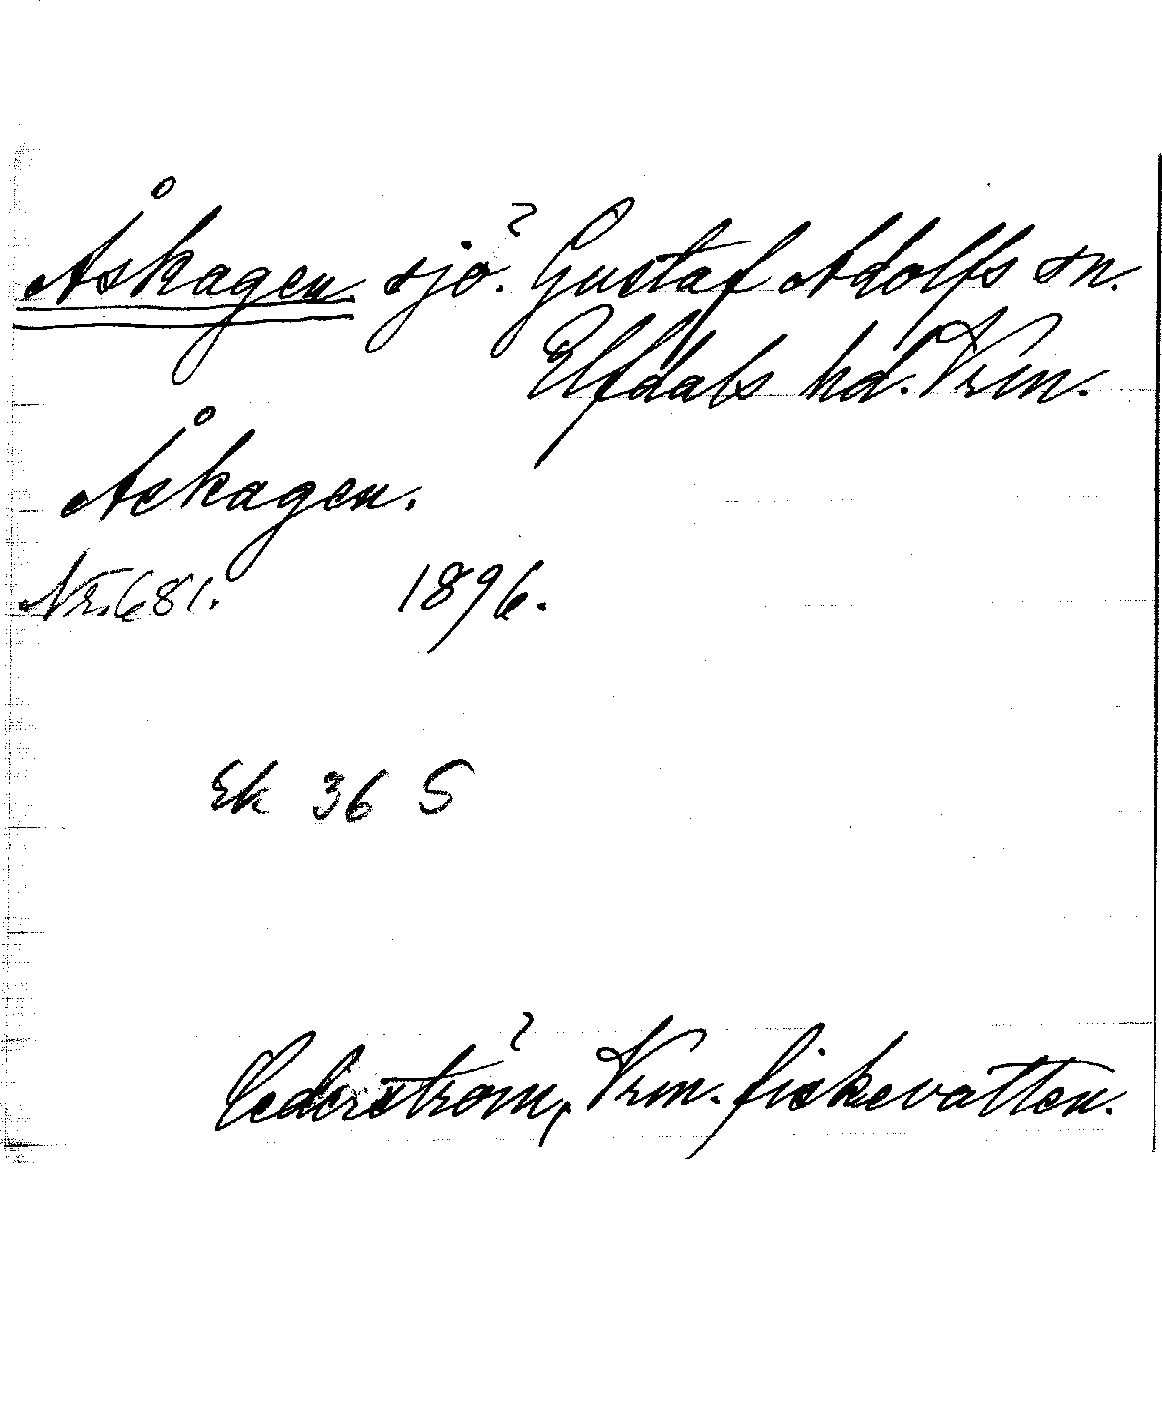 Åskagen. sjö. Gustaf Adolfs sn.
Elfdals hd. Vrm.
Åskagen.
Nr. 681. 1896.
Ek 36 S
Cederström, Vrm. fiskevatten.